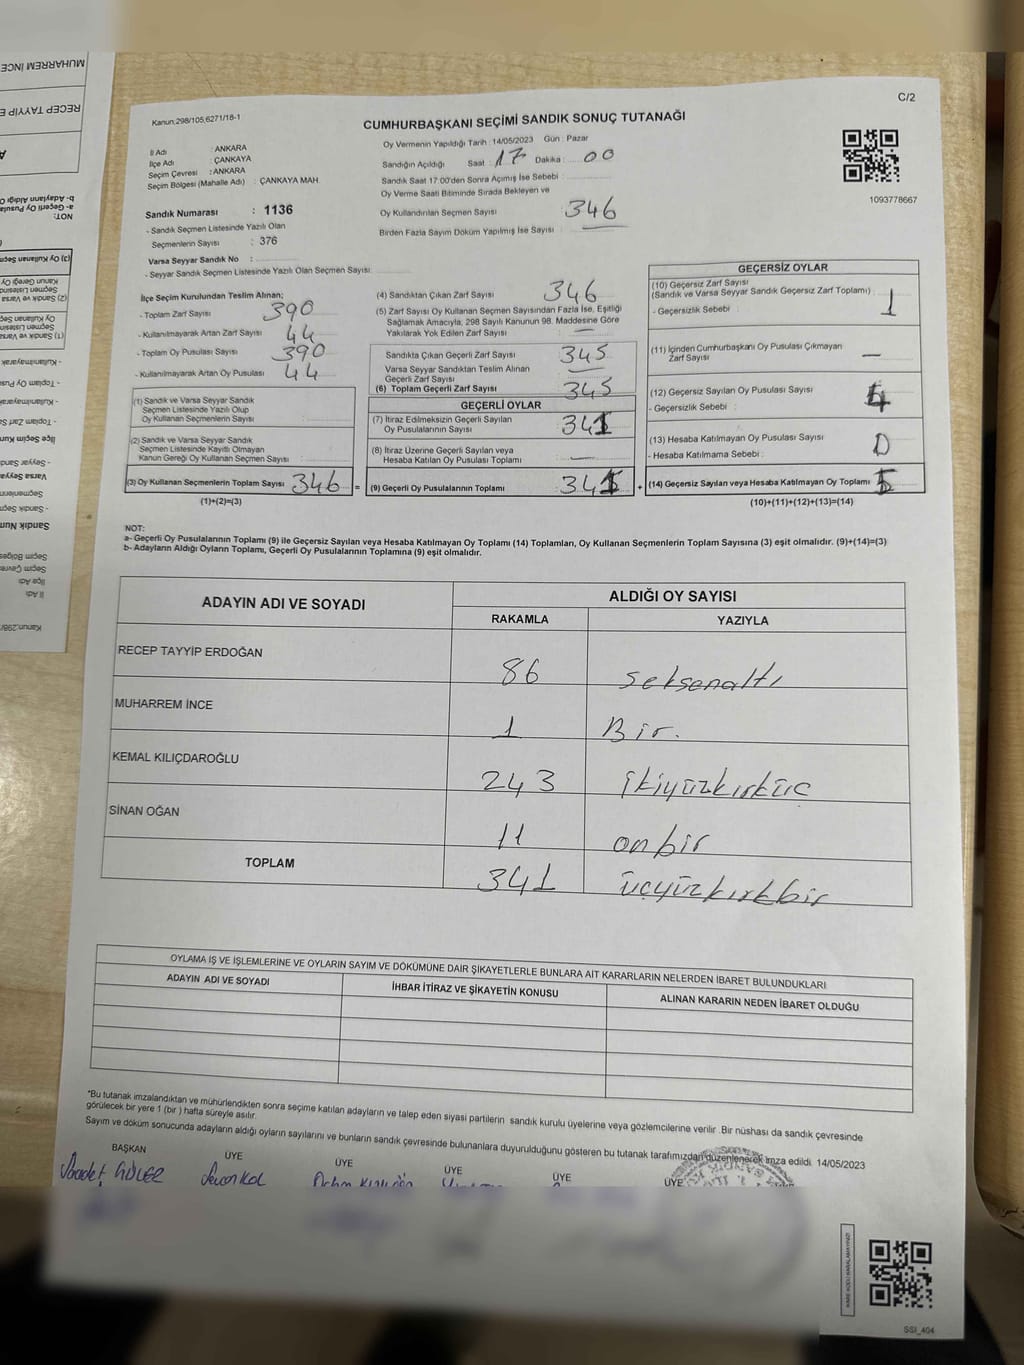 C/2
Kanun.298/105,6271/18-1
CUMHURBAŞKANI SEÇİMİ SANDIK SONUÇ TUTANAĞI
İl Adı : ANKARA
İlçe Adı : ÇANKAYA
Seçim Çevresi : ANKARA
Seçim Bölgesi (Mahalle Adı) : ÇANKAYA MAH.
Oy Vermenin Yapıldığı Tarih : 14/05/2023 Gün : Pazar
Sandığın Açıldığı Saat : 17 Dakika : 00
Sandık Saat 17:00'den Sonra Açılmış İse Sebebi :
Oy Verme Saati Bitiminde Sırada Bekleyen ve
Oy Kullandırılan Seçmen Sayısı : 346
Birden Fazla Sayım Döküm Yapılmış İse Sayısı : —
1093778667
Sandık Numarası : 1136
- Sandık Seçmen Listesinde Yazılı Olan
Seçmenlerin Sayısı : 376
Varsa Seyyar Sandık No :
- Seyyar Sandık Seçmen Listesinde Yazılı Olan Seçmen Sayısı:
İlçe Seçim Kurulundan Teslim Alınan;
- Toplam Zarf Sayısı : 390
- Kullanılmayarak Artan Zarf Sayısı : 44
- Toplam Oy Pusulası Sayısı : 390
- Kullanılmayarak Artan Oy Pusulası : 44
(1) Sandık ve Varsa Seyyar Sandık
Seçmen Listesinde Yazılı Olup
Oy Kullanan Seçmenlerin Sayısı :
(2) Sandık ve Varsa Seyyar Sandık
Seçmen Listesinde Kayıtlı Olmayan
Kanun Gereği Oy Kullanan Seçmen Sayısı :
(3) Oy Kullanan Seçmenlerin Toplam Sayısı : 346 =
(1)+(2)=(3)
(4) Sandıktan Çıkan Zarf Sayısı : 346
(5) Zarf Sayısı Oy Kullanan Seçmen Sayısından Fazla İse, Eşitliği
Sağlamak Amacıyla, 298 Sayılı Kanunun 98. Maddesine Göre
Yakılarak Yok Edilen Zarf Sayısı : —
Sandıkta Çıkan Geçerli Zarf Sayısı : 345
Varsa Seyyar Sandıktan Teslim Alınan
Geçerli Zarf Sayısı : —
(6) Toplam Geçerli Zarf Sayısı : 345
GEÇERLİ OYLAR
(7) İtiraz Edilmeksizin Geçerli Sayılan
Oy Pusulalarının Sayısı : 341
(8) İtiraz Üzerine Geçerli Sayılan veya
Hesaba Katılan Oy Pusulası Toplamı : —
(9) Geçerli Oy Pusulalarının Toplamı : 341 +
GEÇERSİZ OYLAR
(10) Geçersiz Zarf Sayısı
(Sandık ve Varsa Seyyar Sandık Geçersiz Zarf Toplamı) : 1
- Geçersizlik Sebebi :
(11) İçinden Cumhurbaşkanı Oy Pusulası Çıkmayan
Zarf Sayısı : —
(12) Geçersiz Sayılan Oy Pusulası Sayısı : 4
- Geçersizlik Sebebi :
(13) Hesaba Katılmayan Oy Pusulası Sayısı : 0
- Hesaba Katılmama Sebebi :
(14) Geçersiz Sayılan veya Hesaba Katılmayan Oy Toplamı : 5
(10)+(11)+(12)+(13)=(14)
NOT:
a- Geçerli Oy Pusulasının Toplamı (9) ile Geçersiz Sayılan veya Hesaba Katılmayan Oy Toplamı (14) Toplamları, Oy Kullanan Seçmenlerin Toplam Sayısına (3) eşit olmalıdır. (9)+(14)=(3)
b- Adayların Aldığı Oyların Toplamı, Geçerli Oy Pusulalarının Toplamına (9) eşit olmalıdır.
ADAYIN ADI VE SOYADI ALDIĞI OY SAYISI
RAKAMLA YAZIYLA
RECEP TAYYİP ERDOĞAN 86 seksenaltı
MUHARREM İNCE 1 Bir.
KEMAL KILIÇDAROĞLU 243 ikiyüzkırküç
SİNAN OĞAN 11 onbir
TOPLAM 341 üçyüzkırkbir
OYLAMA İŞ VE İŞLEMLERİNE VE OYLARIN SAYIM VE DÖKÜMÜNE DAİR ŞİKAYETLERLE BUNLARA AİT KARARLARIN NELERDEN İBARET BULUNDUKLARI
ADAYIN ADI VE SOYADI İHBAR İTİRAZ VE ŞİKAYETİN KONUSU ALINAN KARARIN NEDEN İBARET OLDUĞU
*Bu tutanak imzalandıktan ve mühürlendikten sonra seçime katılan adayların ve talep eden siyasi partilerin sandık kurulu üyelerine veya gözlemcilerine verilir. Bir nüshası da sandık çevresinde
görülecek bir yere 1 (bir ) hafta süreyle asılır.
Sayım ve döküm sonucunda adayların aldığı oyların sayılarını ve bunların sandık çevresinde bulunanlara duyurulduğunu gösteren bu tutanak tarafımızdan düzenlenerek imza edildi. 14/05/2023
BAŞKAN ÜYE ÜYE ÜYE ÜYE ÜYE
GÜLER
SSI_404
MUHARREM İNCE
RECEP TAYYİP E